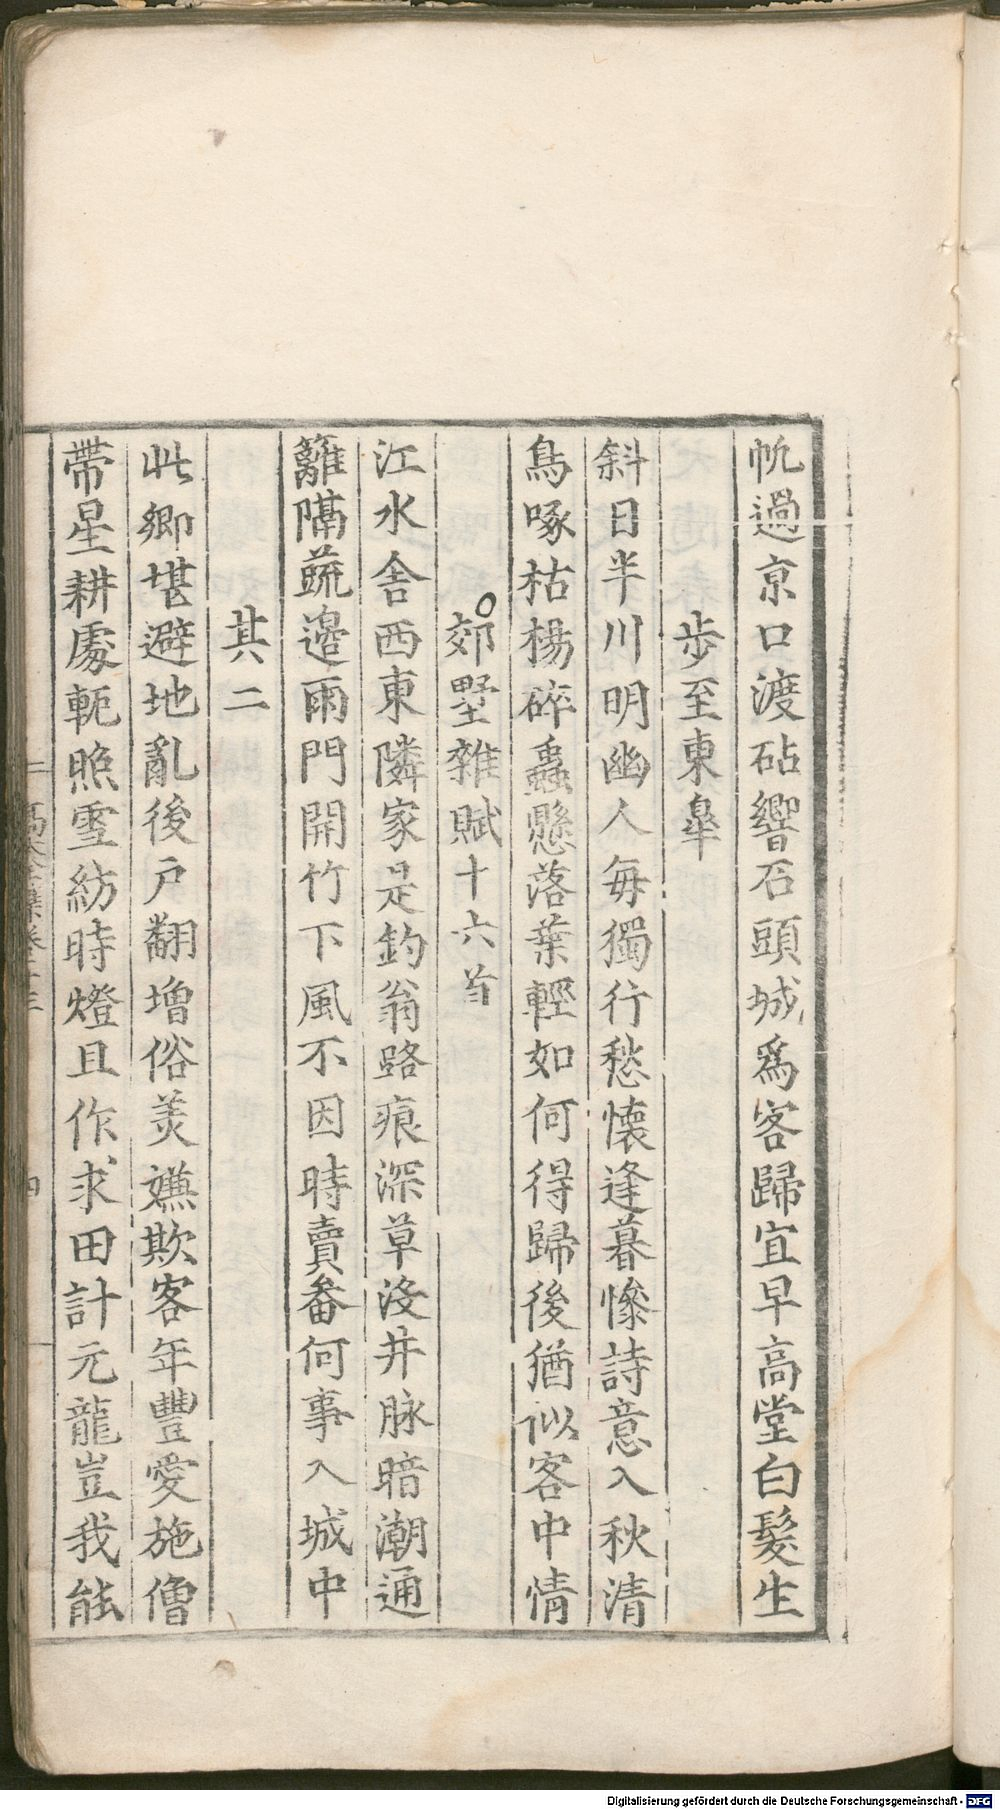 帆過京口渡砧響石頭城爲客歸宜早高堂白髮生
步至東皋
斜日半川明幽人每獨行愁懷逢暮慘詩意入秋清
鳥啄枯楊碎蟲懸落葉輕如何得歸後猶似客中情
郊墅雜賦十六首
江水舍西東隣家是釣翁路痕深草没井脉暗潮通
籬隔蔬邊雨門開竹下風不因時賣畚何事入城中
其二
此鄉堪避地亂後戸翻增俗美嫌欺客年豐愛施僧
帶星耕處軛照雪紡時燈且作求田計元龍豈我能
Digitalisierung gefördert durch die Deutsche Forschungsgemeinschaft - DFG